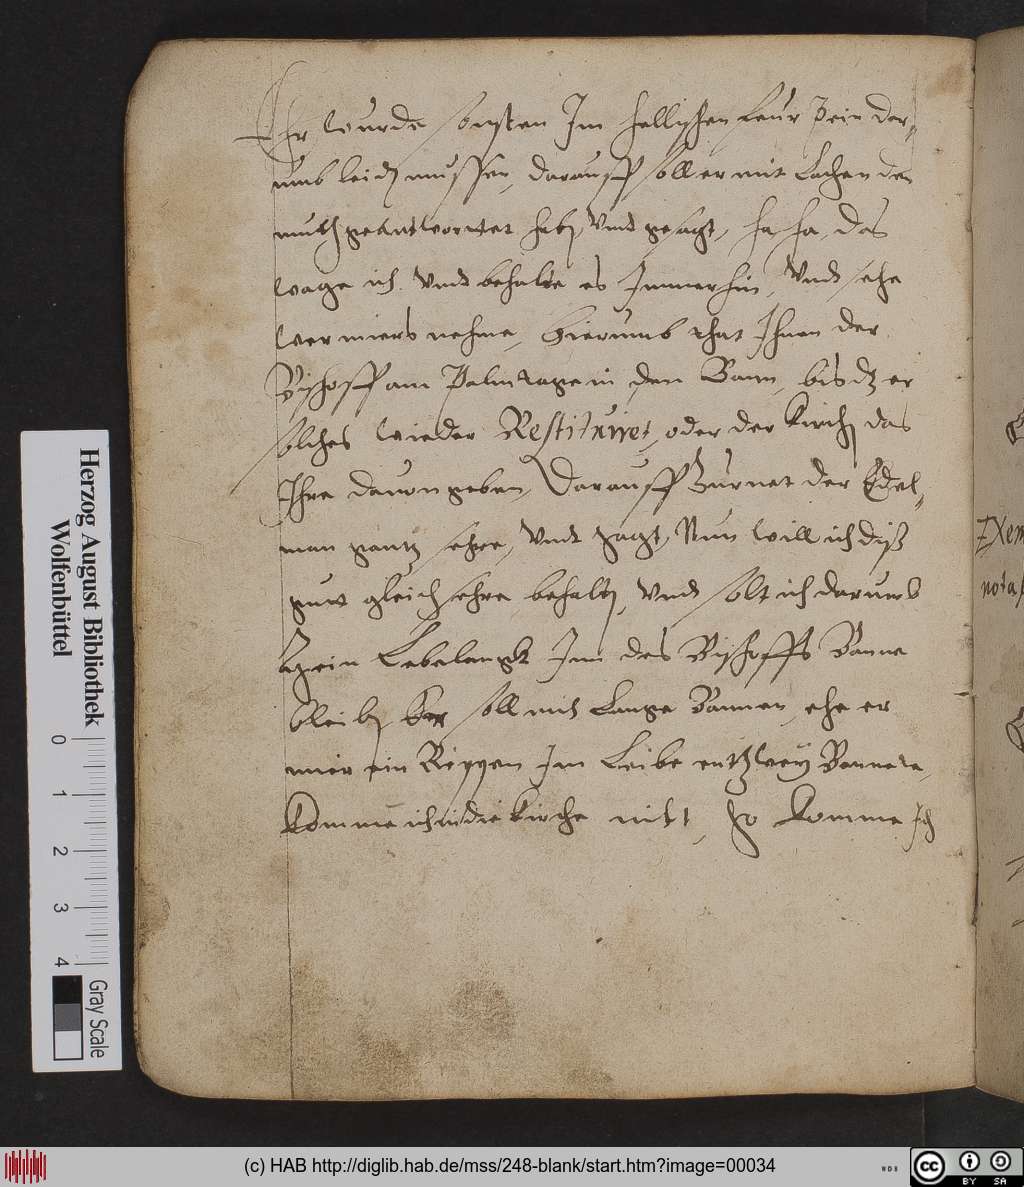 Er wurde sonsten Im hellischen feur Pein dar-
umb leiden mussen, darauff soll er mit lachenden
muth geantwortet haben, Vnnd gesagt, ha ha, das
wage ich, Vnnd behalte es Immerhin, Vnnd sehe
wer miers nehme, Hierumb that Ihnen der
Bischoff am Palmtage in den Bann, bis dz er
solches wieder Restituiret, oder der Kirchen das
Ihre dauon geben, Darauff Zurnet der Edel-
man gantz sehre, Vnnd sagt, Nun will ich diß
gutt gleich sehre behalten, Vnnd solt ich darumb
mein Lebelangk Im des Bischoffs Banne
bleiben, Er soll mich Lange Bannen, ehe er
mier ein Rippen Im Leibe entzwey Bannete,
Komme ich in die Kirche nicht, so komme Ich
Exem
nota
Herzog August Bibliothek
Wolfenbüttel
0
1
2
3
4
Gray Scale
(c) HAB http://diglib.hab.de/mss/248-blank/start.htm?image=00034
WDB
cc
BY SA